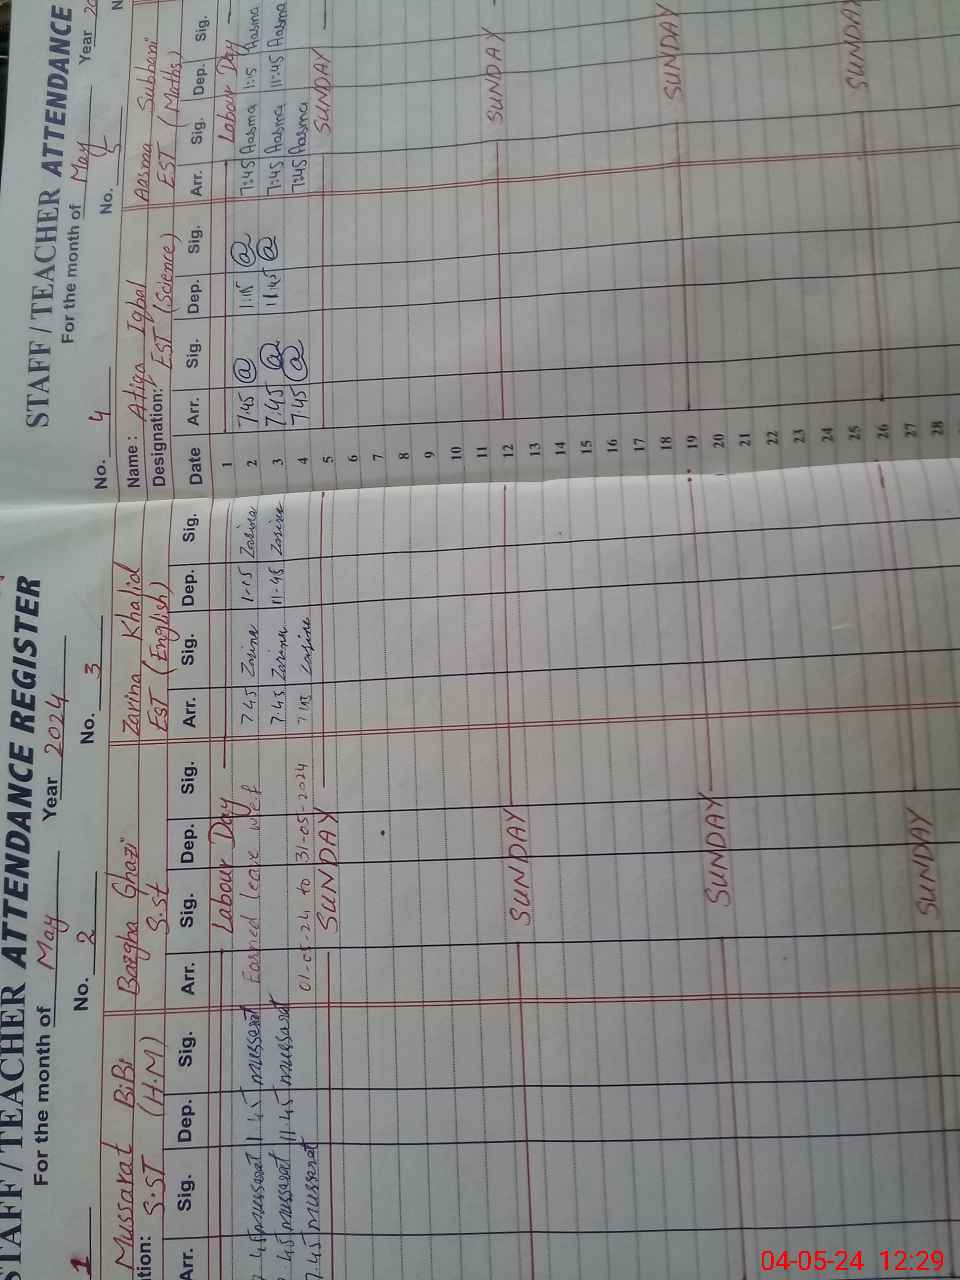 STAFF / TEACHER ATTENDANCE REGISTER
For the month of May Year 2024
1 No. 2 No. 3
Mussarat BiBi Bazgha Ghazi Zarina Khalid
tion: S.ST (H.M) S.st EST (English)
Arr. Sig. Dep. Sig. Arr. Sig. Dep. Sig. Arr. Sig. Dep. Sig.
Labour Day
7.45 mussarat 1.45 mussarat Earned leave w.e.f 7.45 Zarina 1-15 Zarina
7.45 mussarat 11.45 mussarat 7.45 Zarina 11-45 Zarina
7.45 mussarat 01-05-24 to 31-05-2024 7.45 Zarina
SUNDAY
SUNDAY
SUNDAY
SUNDAY
STAFF / TEACHER ATTENDANCE
For the month of May Year 20
No. 4 No. 5 N
Name: Atiqa Iqbal Aasma Subhani
Designation: EST (Science) EST (Maths)
Date Arr. Sig. Dep. Sig. Arr. Sig. Dep. Sig.
1 Labour Day
2 7.45 @ 1:15 @ 7:45 Aasma 1:15 Aasma
3 7.45 @ 11.45 @ 7:45 Aasma 11:45 Aasma
4 7.45 @ 7:45 Aasma
5 SUNDAY
6
7
8
9
10
11
12 SUNDAY
13
14
15
16
17
18
19 SUNDAY
20
21
22
23
24
25
26 SUNDAY
27
28
04-05-24 12:29